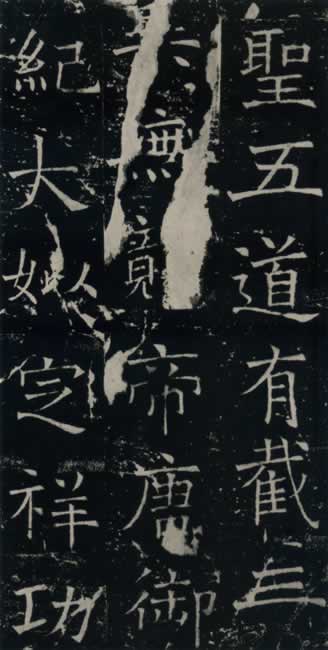 聖五道有截三
無竟帝唐御
紀大妙定祥功